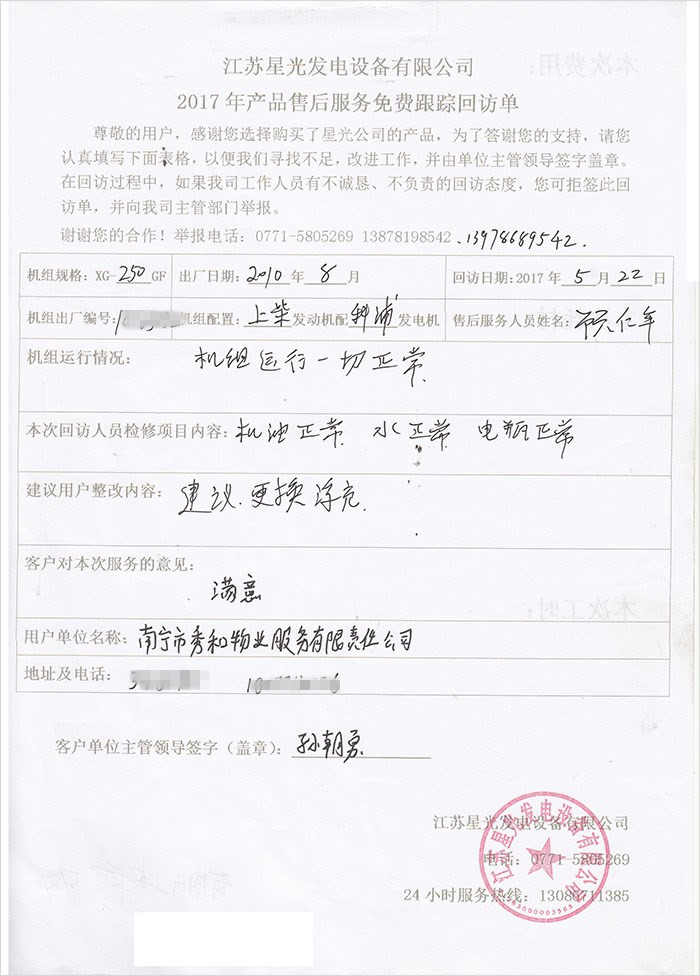 江苏星光发电设备有限公司
2017年产品售后服务免费跟踪回访单
尊敬的用户，感谢您选择购买了星光公司的产品，为了答谢您的支持，请您
认真填写下面表格，以便我们寻找不足，改进工作，并由单位主管领导签字盖章。
在回访过程中，如果我司工作人员有不诚恳、不负责的回访态度，您可拒签此回
访单，并向我司主管部门举报。
谢谢您的合作！举报电话：0771-5805269 13878198542 、13978689542.
机组规格：XG-250GF 出厂日期：2010年8月 回访日期：2017年5月22日
机组出厂编号： 机组配置：上柴发动机配科浦发电机 售后服务人员姓名：仁年
机组运行情况： 机组运行一切正常
本次回访人员检修项目内容：机油正常 水正常 电瓶正常
建议用户整改内容： 建议更换浮充
客户对本次服务的意见：
满意
用户单位名称：南宁市秀和物业服务有限责任公司
地址及电话：
客户单位主管领导签字（盖章）：孙朝勇
江苏星光发电设备有限公司
电话：0771-5805269
24小时服务热线：13086711385
江苏星光发电设备有限公司
本次费用：
本次工时：